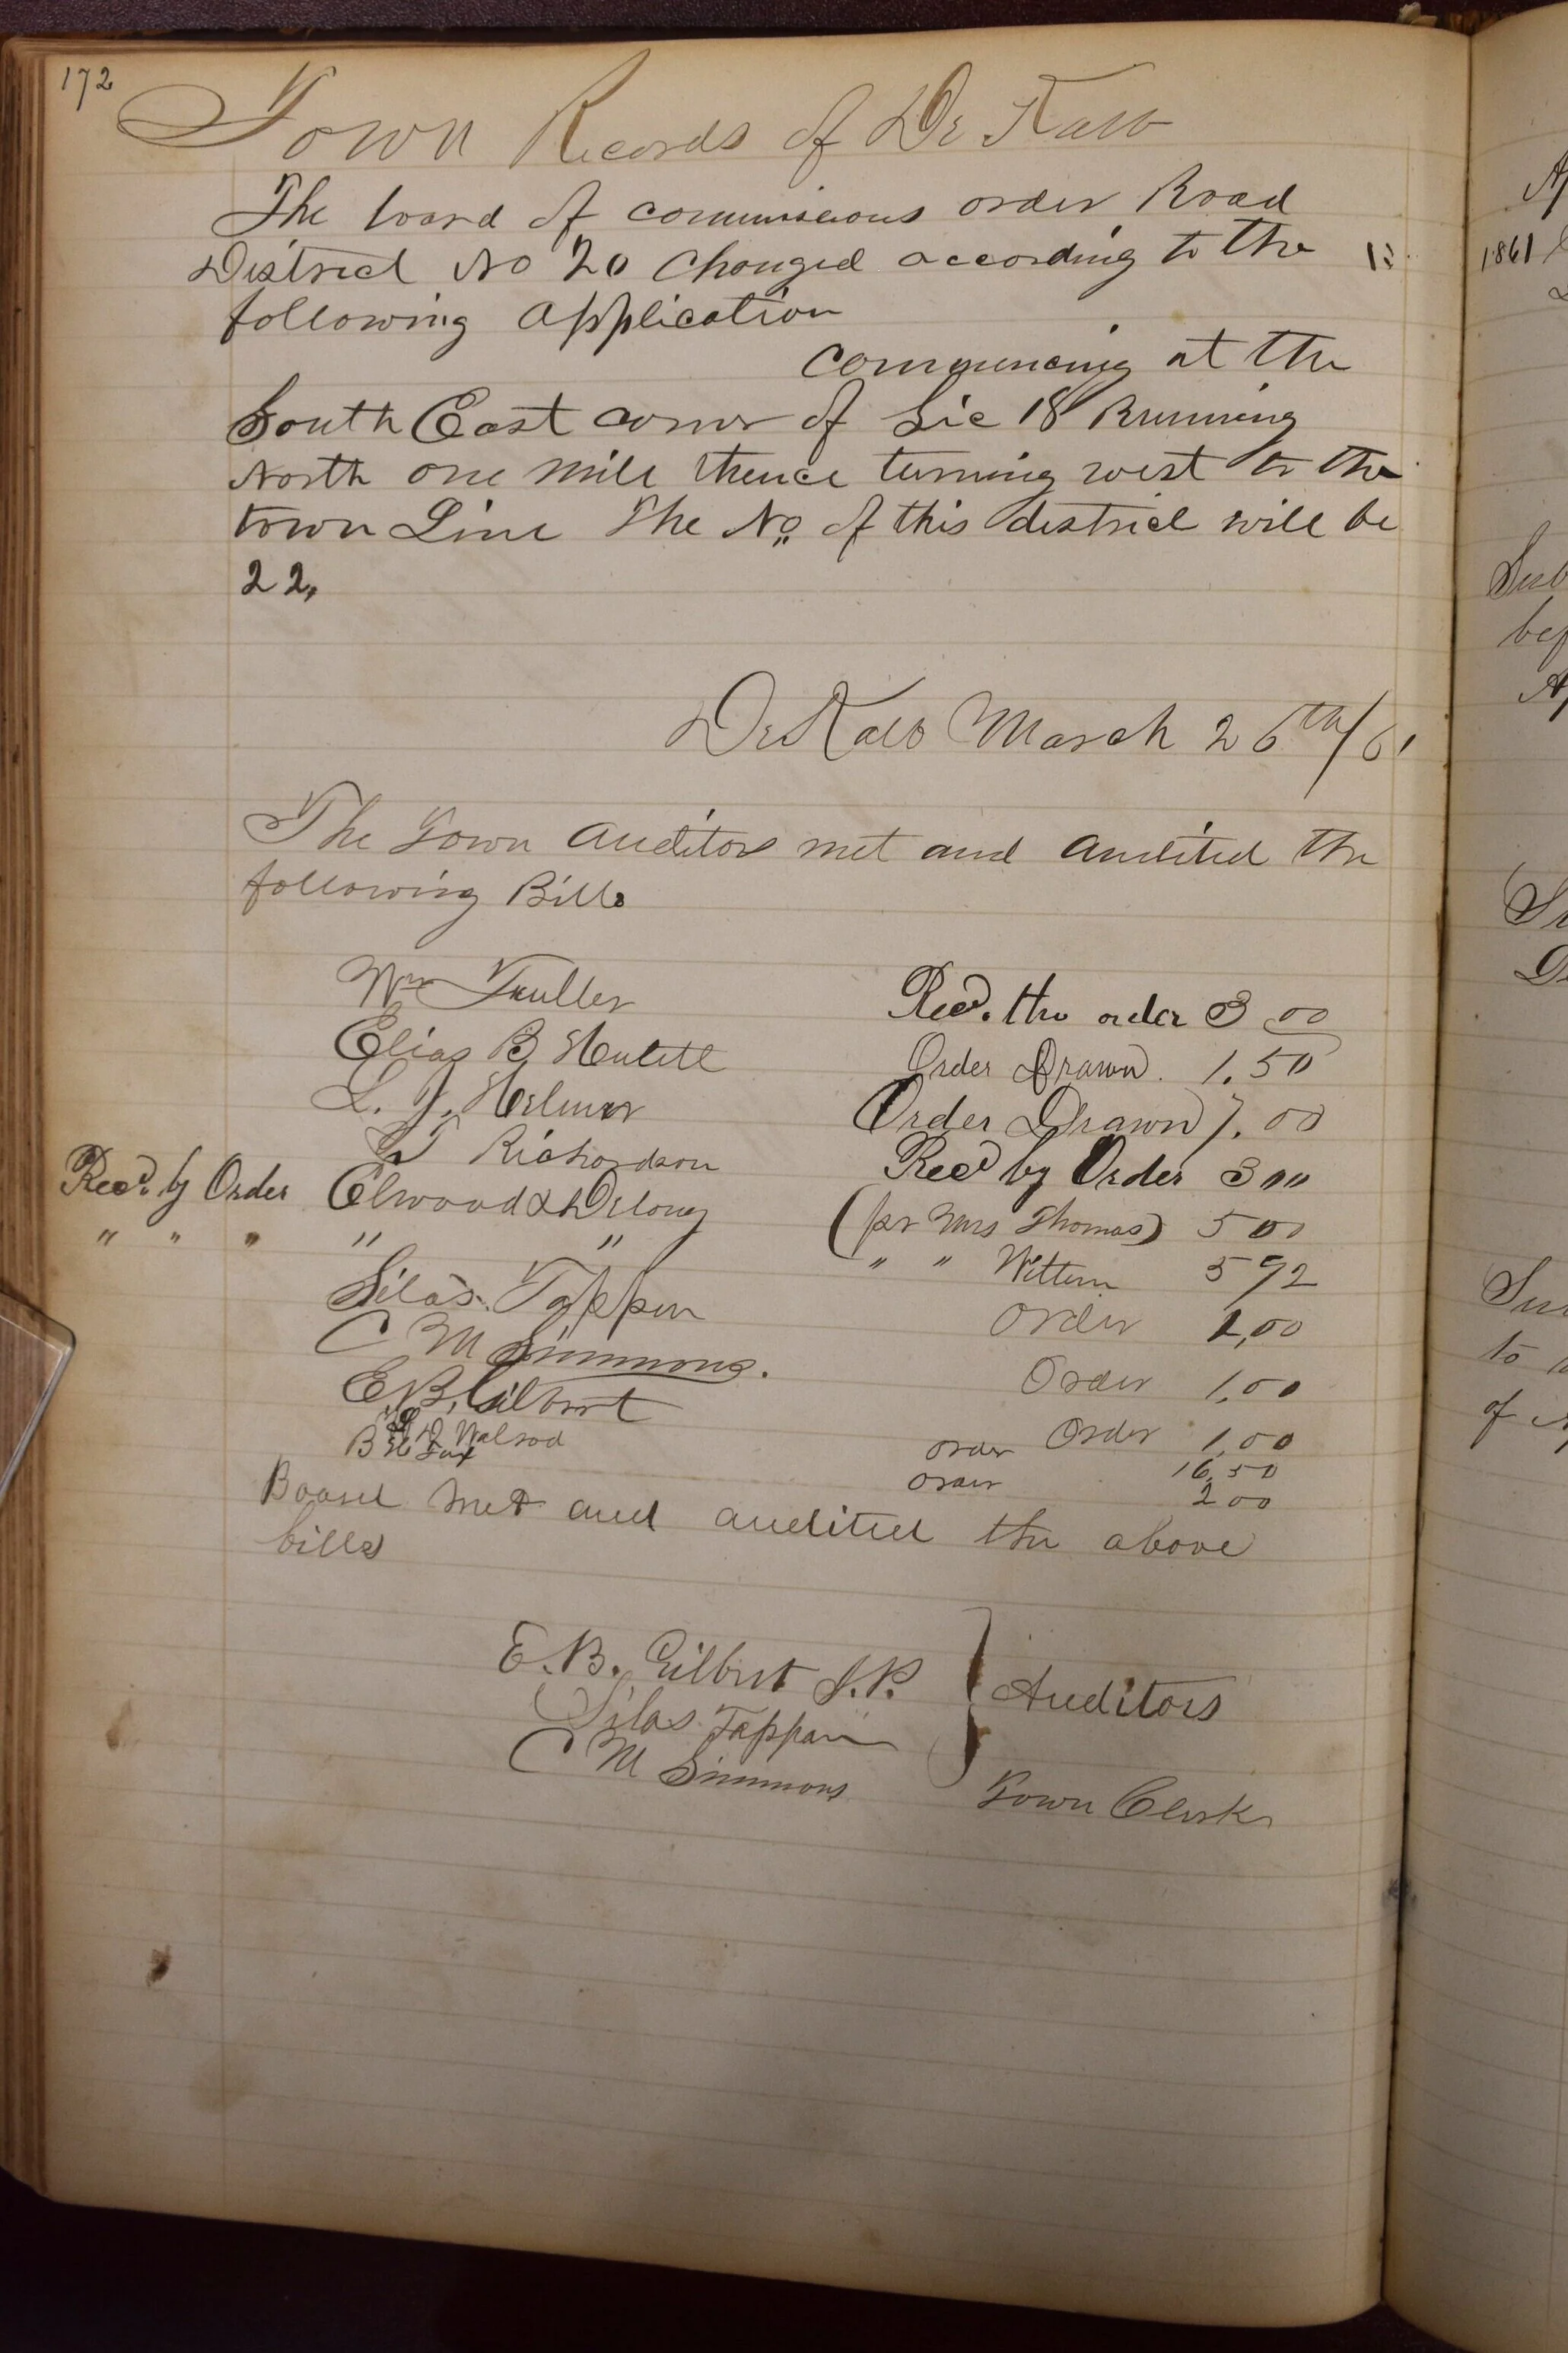 172
Town Records of De Kalb
The board of commissions order Road
District No 20 Changed according to the
following application
commencing at the
South East corner of Sec 18 Running
North one mile thence turning west to the
town Line The No of this district will be
22,
De Kalb March 26th/61
The Town Auditors met and Audited the
following Bills
Wm Fuller Recd. the order 3 00
Elias B Hulett Order Drawn. 1.50
L. J. Helmer Order Drawn 7.00
Richardson Recd by Order 3 00
Recd. by Order Elwood & Delong (pr Mrs Thomas) 5 00
" " " " " " " Wittern 5 92
Silas Tappen order 1,00
C M Simmons. Order 1,00
E, B, Gilbert Order 1,00
Walrod order 16,50
B H Fax order 2 00
Board met and audited the above
bills
E. B. Gilbert J. P.
Silas Tappan Auditors
C M Simmons Town Clerk
1861